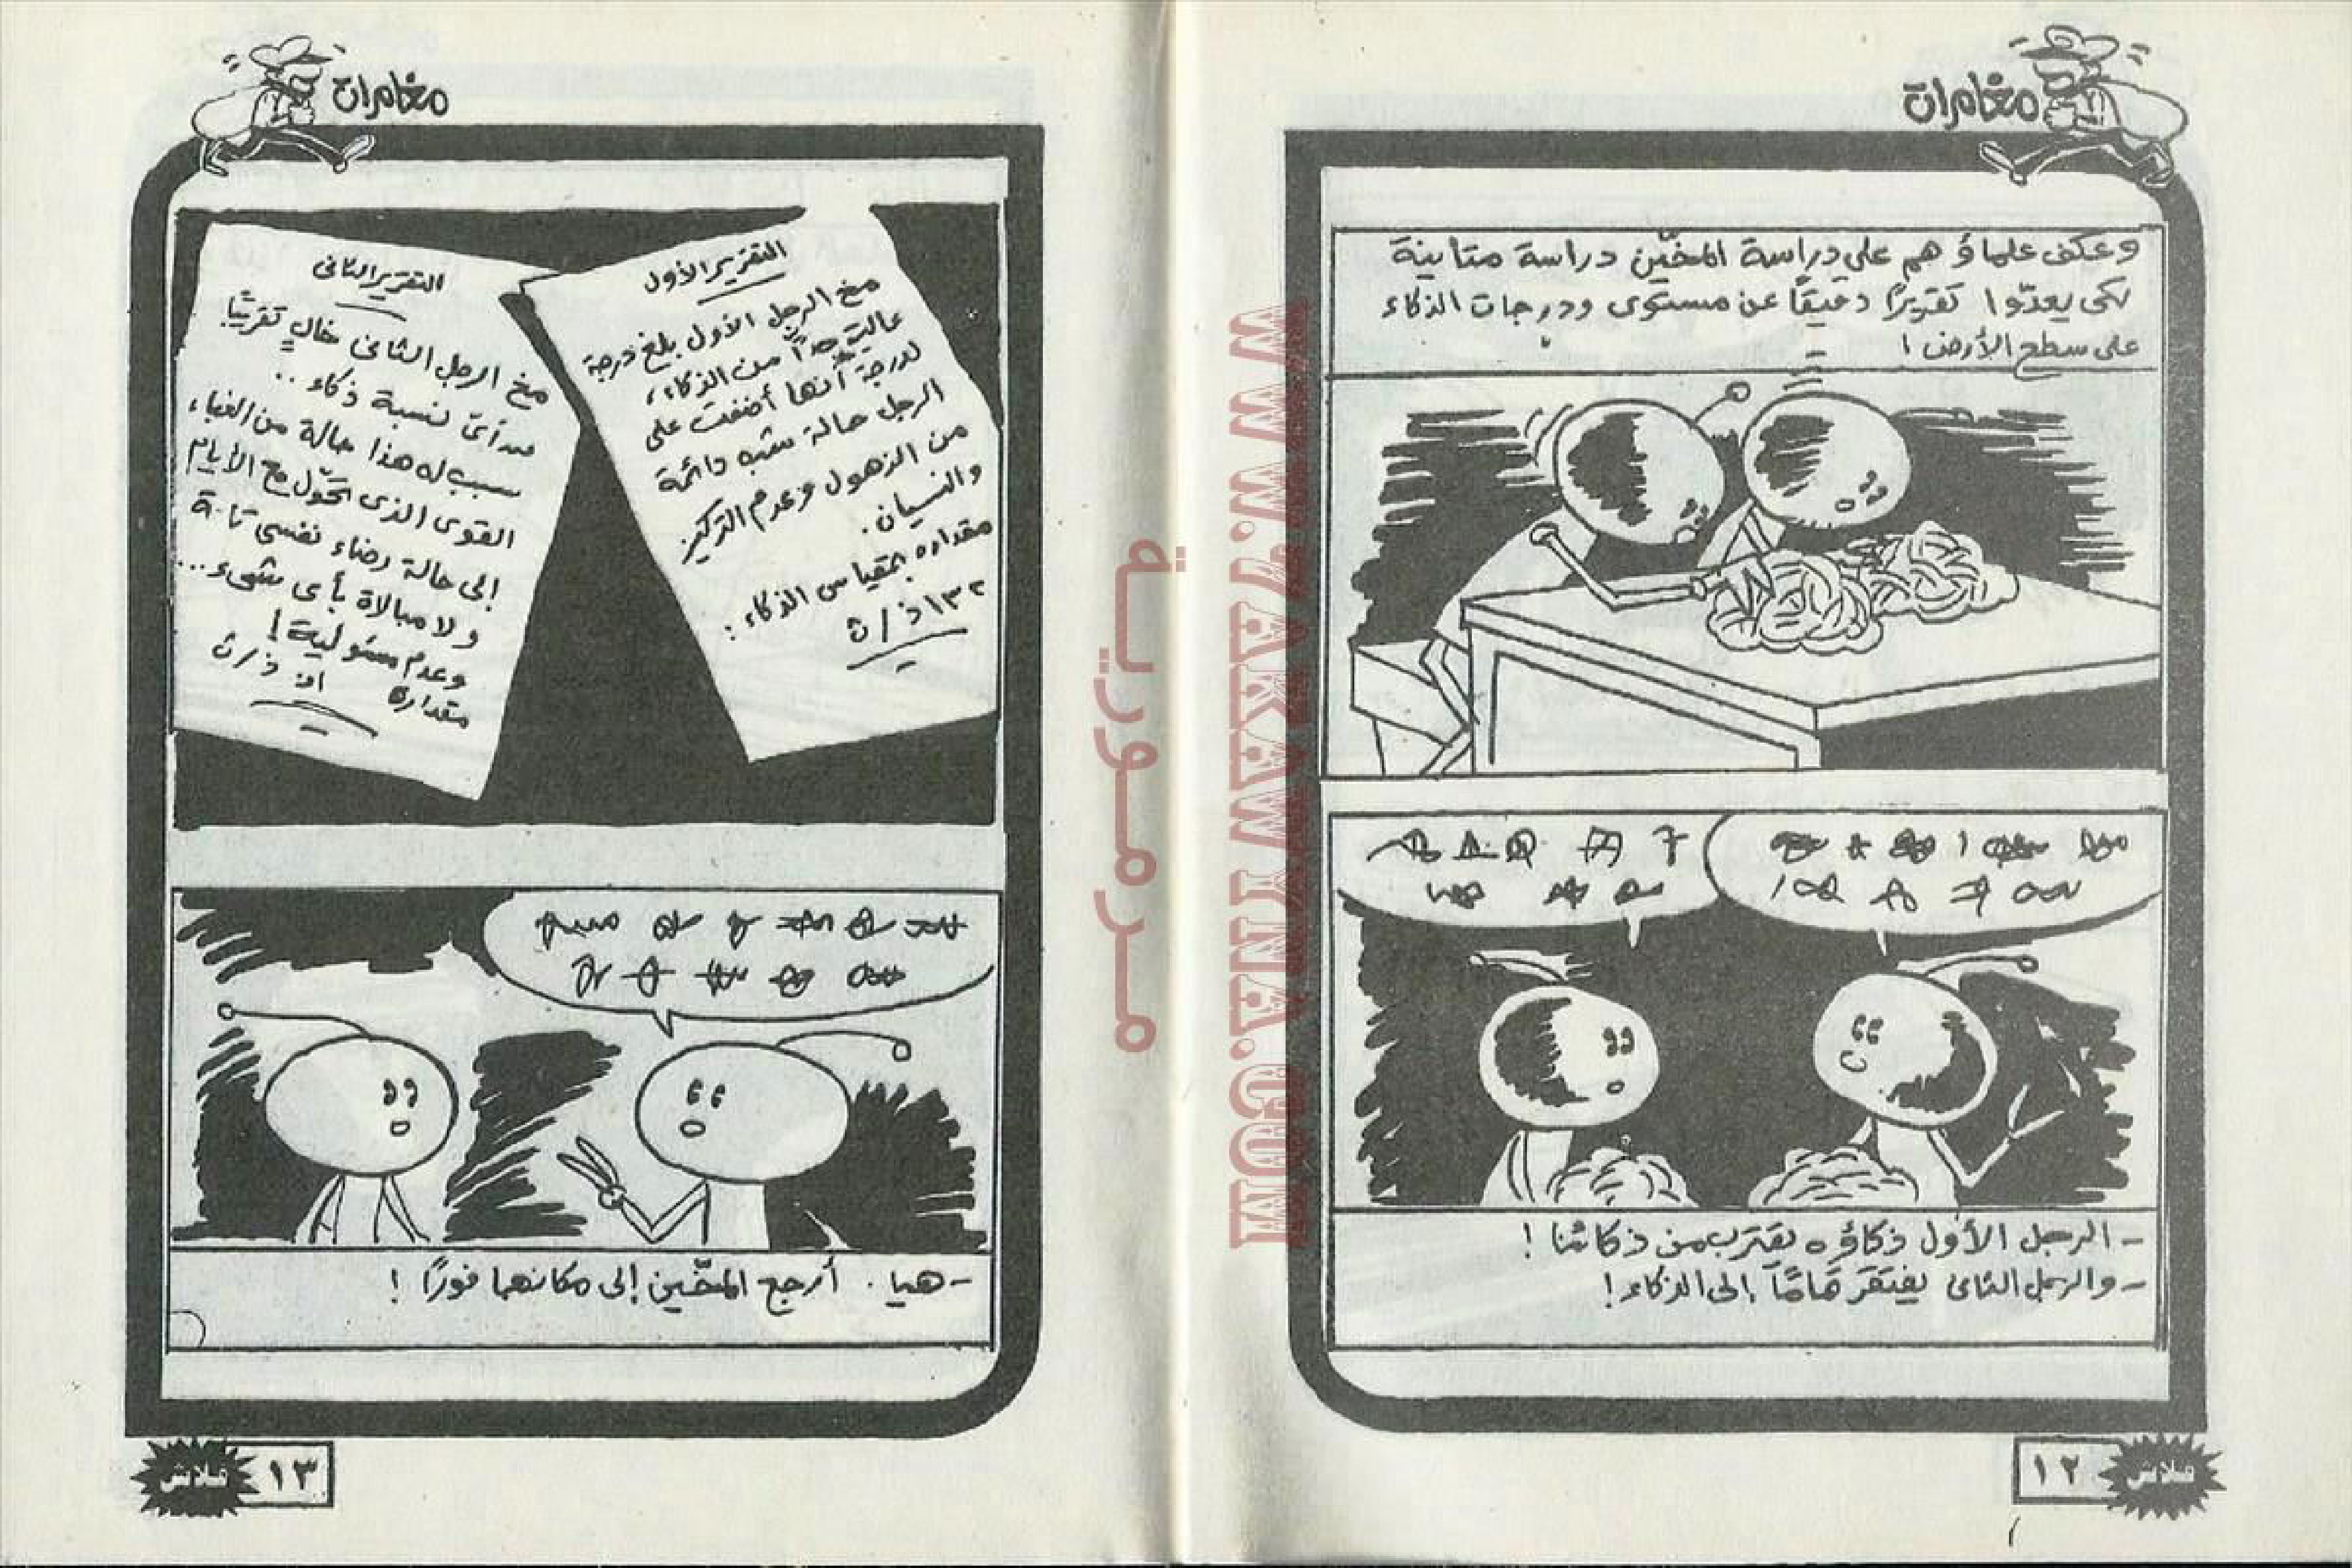 مغامرات
وعكف علماؤهم على دراسة المخّين دراسة متأنية
لكى يعدّوا تقريرًا دقيقًا عن مستوى ودرجات الذكاء
على سطح الأرض !
- الرجل الأول ذكاؤه يقترب من ذكائنا !
- والرجل الثانى يفتقر تمامًا إلى الذكاء !
فلاش
١٢
WWW.YARAWINA.COM
مرمورية
مغامرات
التقرير الأول
مخ الرجل الأول بلغ درجة
عالية جدًا من الذكاء،
لدرجة أنها أضفت على
الرجل حالة شبه دائمة
من الذهول وعدم التركيز
والنسيان.
مقداره بمقياس الذكاء :
١٣٢ ذ/ث
التقرير الثانى
مخ الرجل الثانى خالٍ تقريبًا
من أى نسبة ذكاء ..
سبب له هذا حالة من الغباء
القوى الذى تحوّل مع الأيام
إلى حالة رضاء نفسى تامة
ولا مبالاة بأى شىء ...
وعدم مسئولية !
مقداره ذ/ث
- هيا . أرجع المخّين إلى مكانهما فورًا !
١٣
فلاش